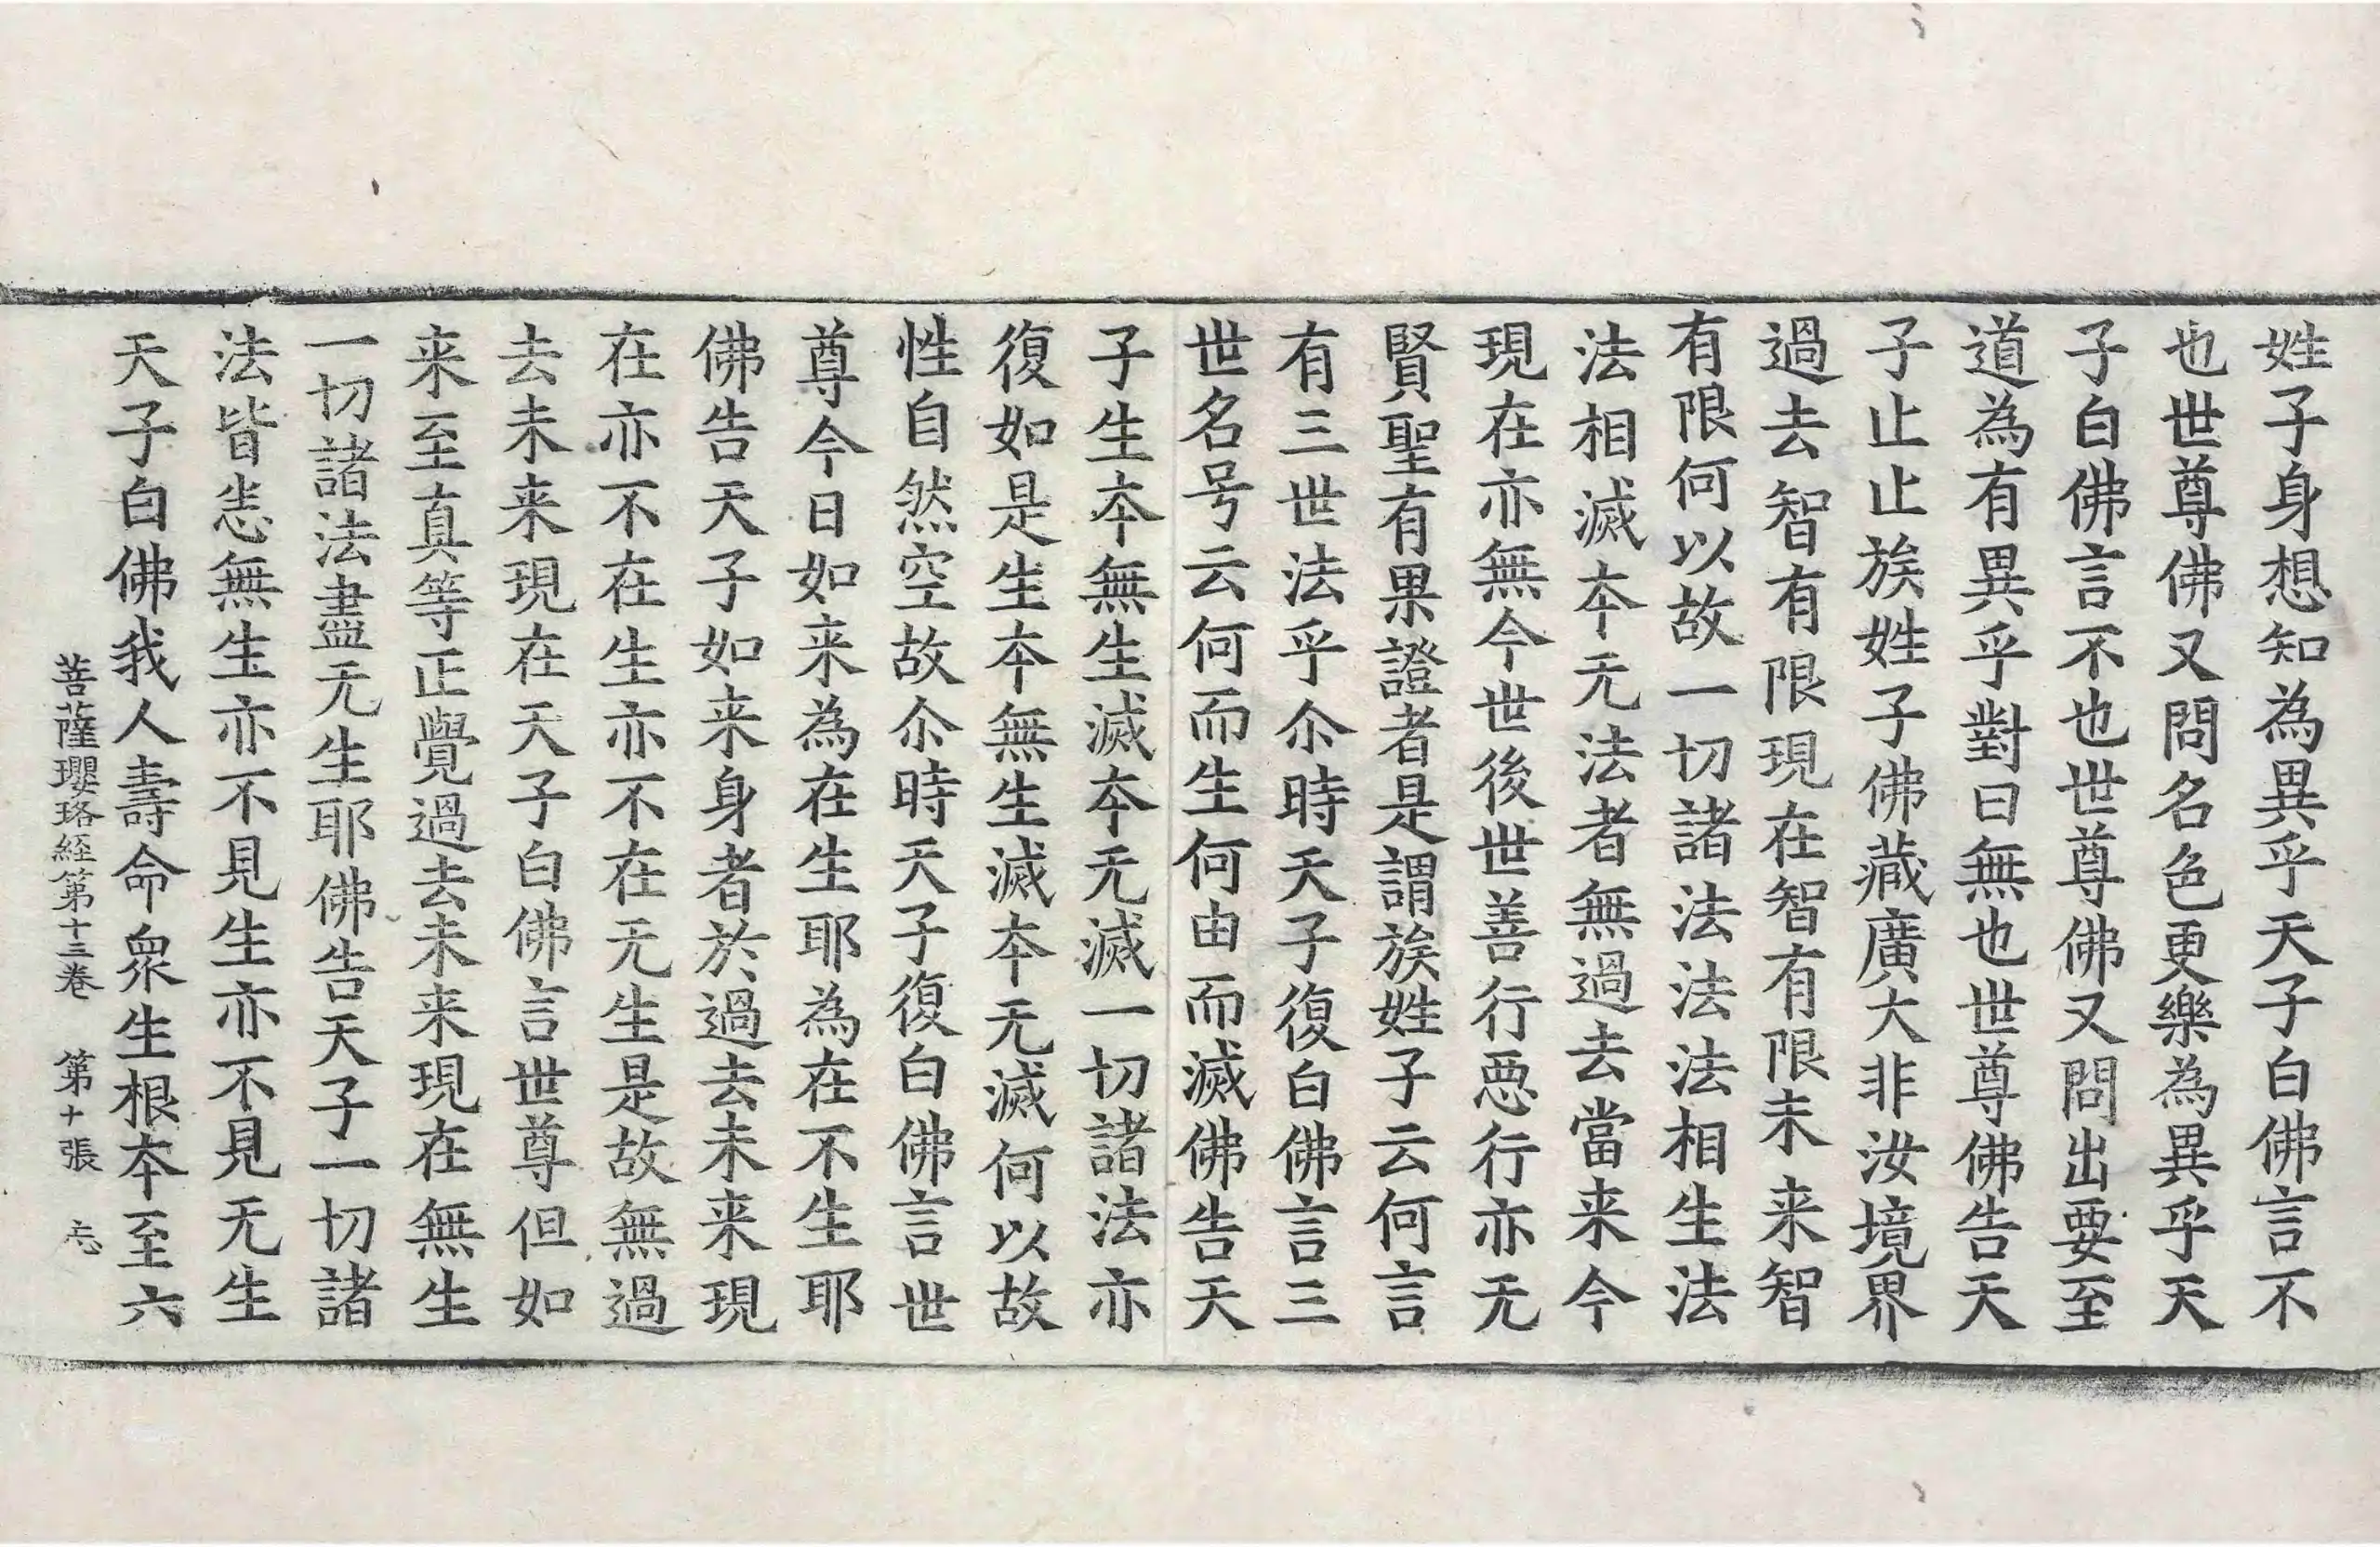 姓子身想知為異乎天子白佛言不
也世尊佛又問名色更樂為異乎天
子白佛言不也世尊佛又問出要至
道為有異乎對曰無也世尊佛告天
子止止族姓子佛藏廣大非汝境界
過去智有限現在智有限未来智
有限何以故一切諸法法法相生法
法相滅夲无法者無過去當来今
現在亦無今世後世善行惡行亦无
賢聖有果證者是謂族姓子云何言
有三世法乎尒時天子復白佛言三
世名号云何而生何由而滅佛告天
子生夲無生滅夲无滅一切諸法亦
復如是生夲無生滅夲无滅何以故
性自然空故尒時天子復白佛言世
尊今日如来為在生耶為在不生耶
佛告天子如来身者於過去未来現
在亦不在生亦不在无生是故無過
去未来現在天子白佛言世尊但如
来至真等正覺過去未来現在無生
一切諸法盡无生耶佛告天子一切諸
法皆悉無生亦不見生亦不見无生
天子白佛我人壽命衆生根夲至六
菩薩瓔珞経第十三卷 第十張 忘